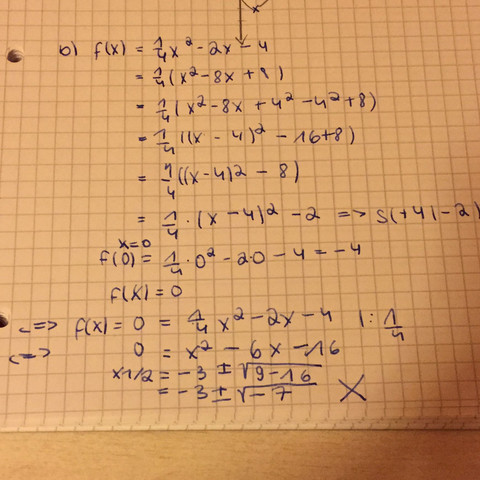 x
b) f(x) = 1/4 x² - 2x - 4
= 1/4 (x² - 8x + 8)
= 1/4 (x² - 8x + 4² - 4² + 8)
= 1/4 ((x - 4)² - 16 + 8)
= 1/4 ((x - 4)² - 8)
= 1/4 · (x - 4)² - 2 => S(+4|-2)
x=0
f(0) = 1/4 · 0² - 2·0 - 4 = -4
f(x) = 0
<=> f(x) = 0 = 1/4 x² - 2x - 4 |: 1/4
<=> 0 = x² - 6x - 16
x1/2 = -3 ± √9-16
= -3 ± √-7 X